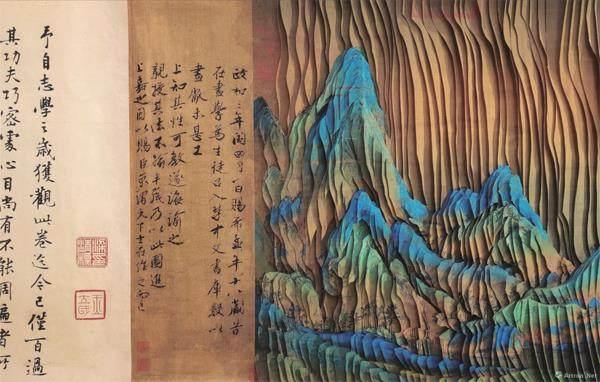 政和三年閏四月一日賜希孟年十八歲昔
在畫學為生徒召入禁中文書庫數以
畫獻未甚工
上知其性可教遂誨諭之
親授其法不踰半歲乃以此圖進
上嘉之因以賜臣京謂天下士在作之而已
予自志學之歲獲觀此卷迄今已僅百過
其功夫巧密處心目尚有不能周遍者所
Artron.Net